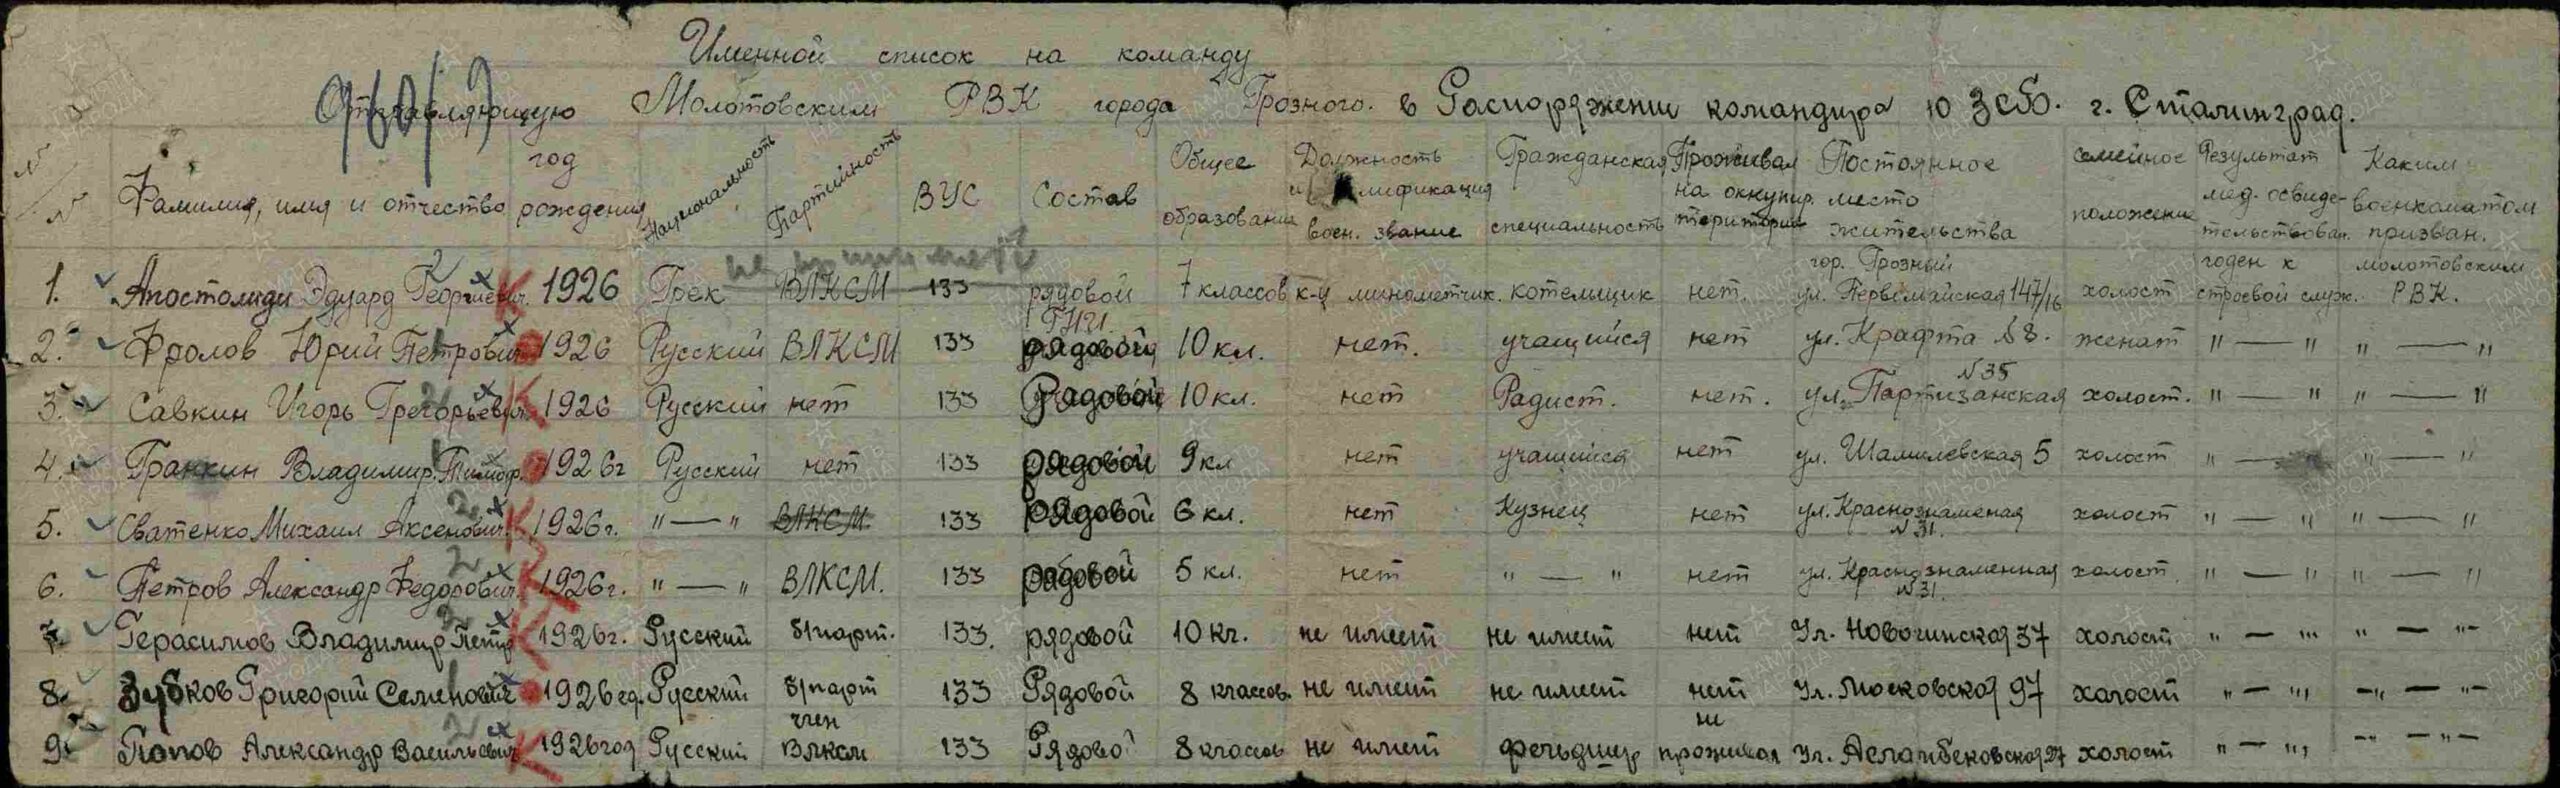 Именной список на команду
Отправляющую Молотовским РВК города Грозного. в Распоряжении командира 10 Зсбо. г. Сталинград.
№ № Фамилия, имя и отчество год рождения Национальность Партийность ВУС Состав Общее образование Должность и квалификация воен. звание Гражданская специальность Проживал на оккупир. територии Постоянное место жительства семейное положение Результат мед. освиде-тельствован. Каким военкоматом призван.
1. Апостолиди Эдуард Георгиевич. 1926 Грек ВЛКСМ 133 рядовой 7 классов к-ц минометчик. котельщик нет. гор. Грозный ул. Первомайская 147/16 холост годен к строевой служ. молотовским РВК.
2. Фролов Юрий Петрович 1926 Русский ВЛКСМ 133 рядовой 10 кл. нет. учащийся нет ул. Крафта №8. женат " — " " — "
3. Савкин Игорь Грегорьевич 1926 Русский нет 133 Рядовой 10 кл. нет Радист. нет. ул. Партизанская №35 холост. " — " " — "
4. Гранкин Владимир. Тимоф. 1926г Русский нет 133 рядовой 9 кл нет учащийся нет ул. Шамилевская 5 холост " — " " — "
5. Сватенко Михаил Аксенович. 1926г. " — " ВЛКСМ. 133 рядовой 6 кл. нет Кузнец нет ул. Краснознаменая №31. холост " — " " — "
6. Петров Александр Федорович. 1926г. " — " ВЛКСМ. 133 рядовой 5 кл. нет " — " нет ул. Краснознаменная №31. холост. " — " " — "
7. Герасимов Владимир Петр 1926г. Русский б/парт. 133. рядовой 10 кл. не имеет не имеет нет Ул. Новогинская 37 холост " — " " — "
8. Зубков Григорий Семенович 1926 гд. Русский б/парт 133 Рядовой 8 классов. не имеет не имеет нет Ул. Московская 97 холост " — " " — "
9. Попов Александр Васильевич 1926 год Русский член ВЛКСМ 133 Рядовой 8 классов не имеет фельдшер не проживал Ул. Асланбековская 27 холост " — " " — "